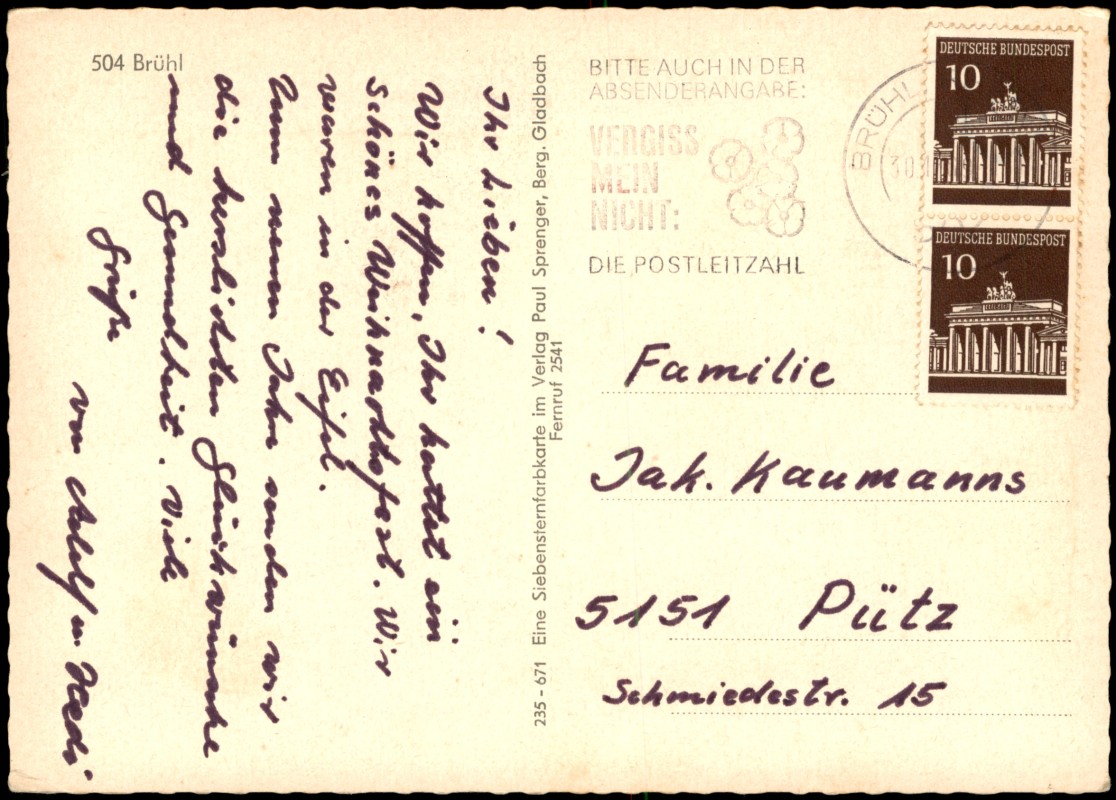 504 Brühl
Ihr Lieben!
Wir hoffen, Ihr hattet ein
schönes Weihnachtsfest. Wir
waren in der Eifel.
Zum neuen Jahr senden wir
die herzlichsten Glückwünsche
und Gesundheit. Viele
Grüße
von Adolf u. Hedi
235 - 671 Eine Siebensternfarbkarte im Verlag Paul Sprenger, Berg. Gladbach
Fernruf 2541
BITTE AUCH IN DER
ABSENDERANGABE:
VERGISS
MEIN
NICHT:
DIE POSTLEITZAHL
BRÜHL
DEUTSCHE BUNDESPOST
10
DEUTSCHE BUNDESPOST
10
Familie
Jak. Kaumanns
5151 Pütz
Schmiedestr. 15